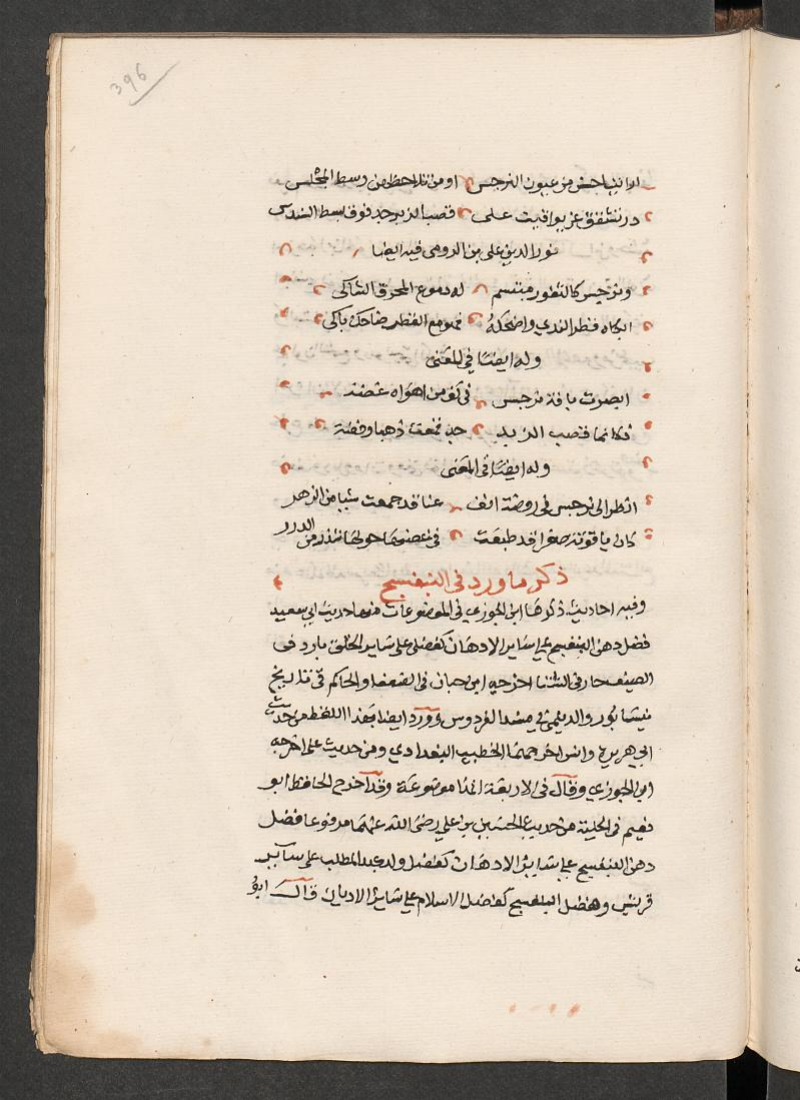 396
وانت يا حسن من عيون النرجس او من تلاحظ من وسط المجلس
در تشقق عن يواقيت على قصب الزبرجد فوق بسط السندس
نور الدين علي بن الرومي فيه ايضا
ونرجس كالثغور مبتسم له دموع المحدق الشاكي
ابكاه قطر الندي واضحكه فهو مع القطر ضاحك باكي
وله ايضا في المعنى
ابصرت باقة نرجس في كف من اهواه غضه
فكانما قصب الزبرجد قمعت ذهبا وفضة
وله ايضا في المعنى
انظر الى نرجس في روضة انف عنا قد جمعت شيا من الزهر
كان ياقوته صفرا قد طبعت في غصنها حولها من الدرر
ذكر ما ورد في البنفسج
وفيه احاديث ذكرها ابن الجوزي في الموضوعات منها حديث ابي سعيد
فضل دهن البنفسج علي ساير الادهان كفضلي على ساير الخلق بارد في
الصيف حار في الشتا اخرجه ابن حبان في الضعفا والحاكم في تاريخ
نيسابور والديلمي في مسند الفردوس وورد ايضا بهذا اللفظ من حديث
ابي هريرة وانس اخرجهما الخطيب البغدادي ومن حديث علي اخرجه
ابن الجوزي وقال في الاربعة انها موضوعة وقد اخرج الحافظ ابو
نعيم في الحلية من حديث الحسين بن علي رضى الله عنهما مرفوعا فضل
دهن البنفسج علي ساير الادهان كفضل ولد عبد المطلب على ساير
قريش وفضل البنفسج كفضل الاسلام علي ساير الاديان قال ابو